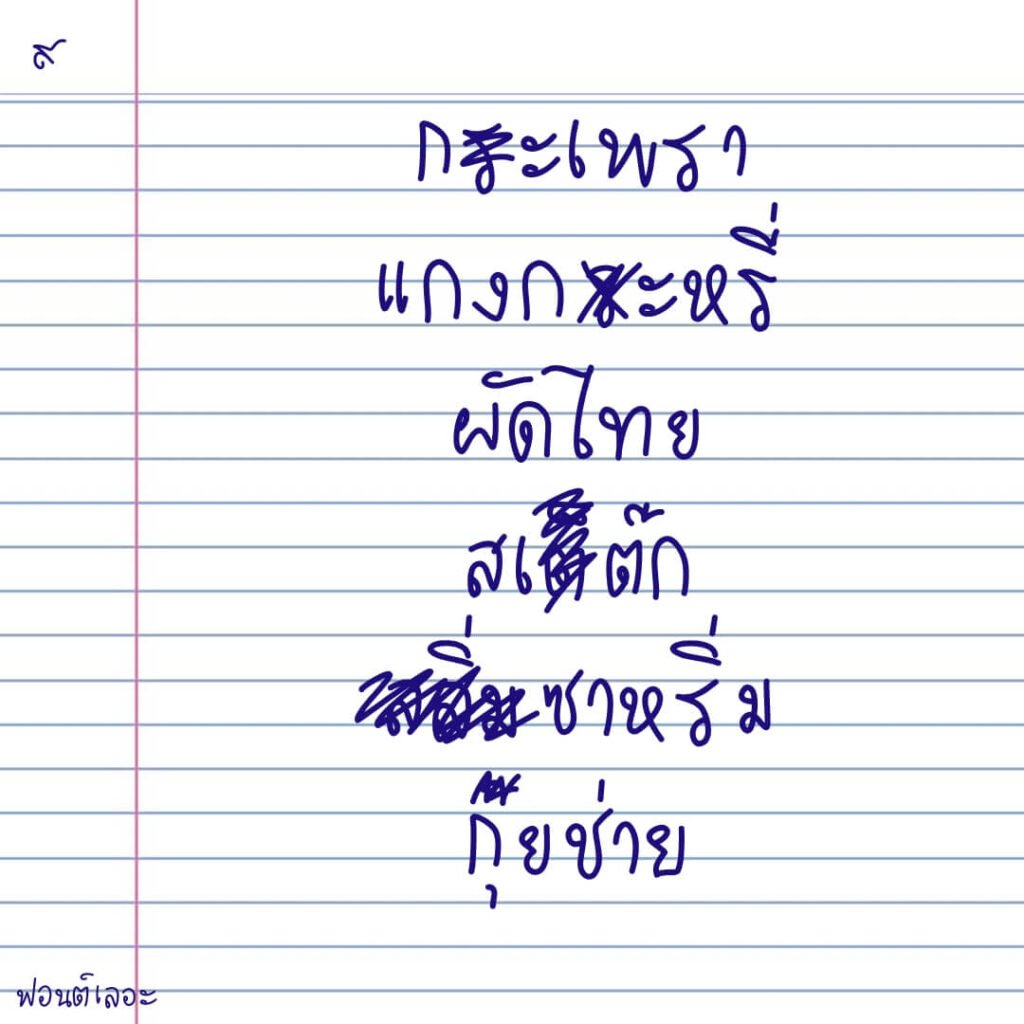 กะเพรา
แกงกะหรี่
ผัดไทย
สเต๊ก
ซาหริ่ม
กุยช่าย
ฟอนต์เลอะ